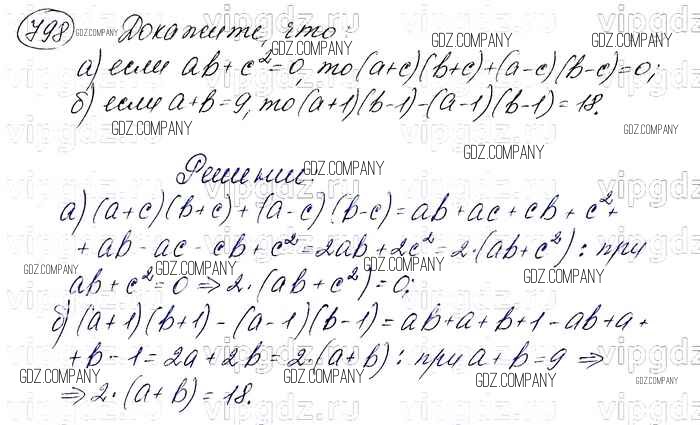 798 Докажите, что:
а) если ab + c² = 0, то (a+c)(b+c)+(a-c)(b-c)=0;
б) если a+b=9, то (a+1)(b-1)-(a-1)(b-1)=18.
Решение.
а) (a+c)(b+c)+(a-c)(b-c)=ab+ac+cb+c²+
+ab-ac-cb+c²=2ab+2c²=2·(ab+c²): при
ab+c²=0 ⇒ 2·(ab+c²)=0;
б) (a+1)(b+1)-(a-1)(b-1)=ab+a+b+1-ab+a+
+b-1=2a+2b=2·(a+b): при a+b=9 ⇒
⇒ 2·(a+b)=18.
GDZ.COMPANY
vipgdz.ru